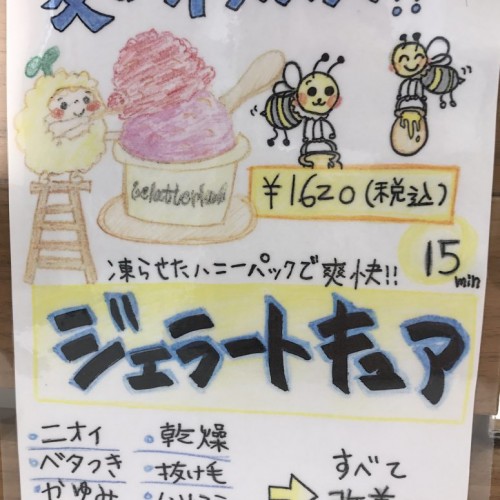 ¥1620(税込)
凍らせたハニーパックで爽快!!
15min
ジェラートキュア
・ニオイ
・乾燥
・ベタつき
・抜け毛
・かゆみ
すべて
改善